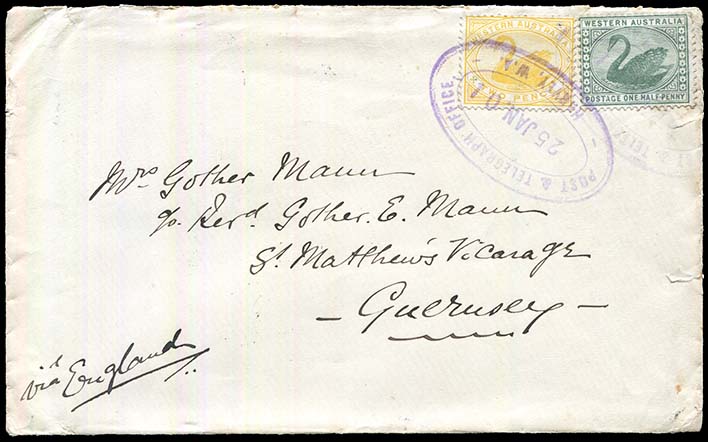 WESTERN AUSTRALIA
PENCE
WESTERN AUSTRALIA
POSTAGE ONE HALF-PENNY
POST & TELEGRAPH OFFICE
25 JAN 01
W.A.
POST & TELE
Mrs Gother Mann
c/o Revd. Gother. E. Mann
St Matthew's Vicarage
- Guernsey -
via England